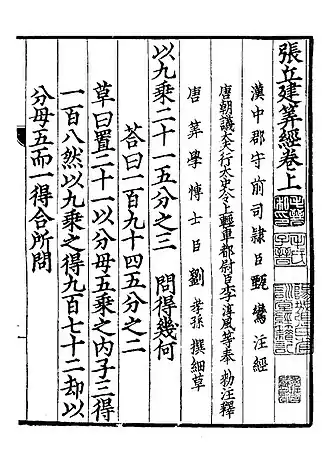 張丘建筭經卷上
漢中郡守前司隷臣甄鸞注經
唐朝議大夫行太史令上輕車都尉臣李淳風等奉勑注釋
唐筭學博士臣劉孝孫撰細草
以九乗二十一五分之三　問得幾何
荅曰一百九十四五分之二
草曰置二十一以分母五乗之内子三得
一百八然以九乗之得九百七十二却以
分母五而一得合所問